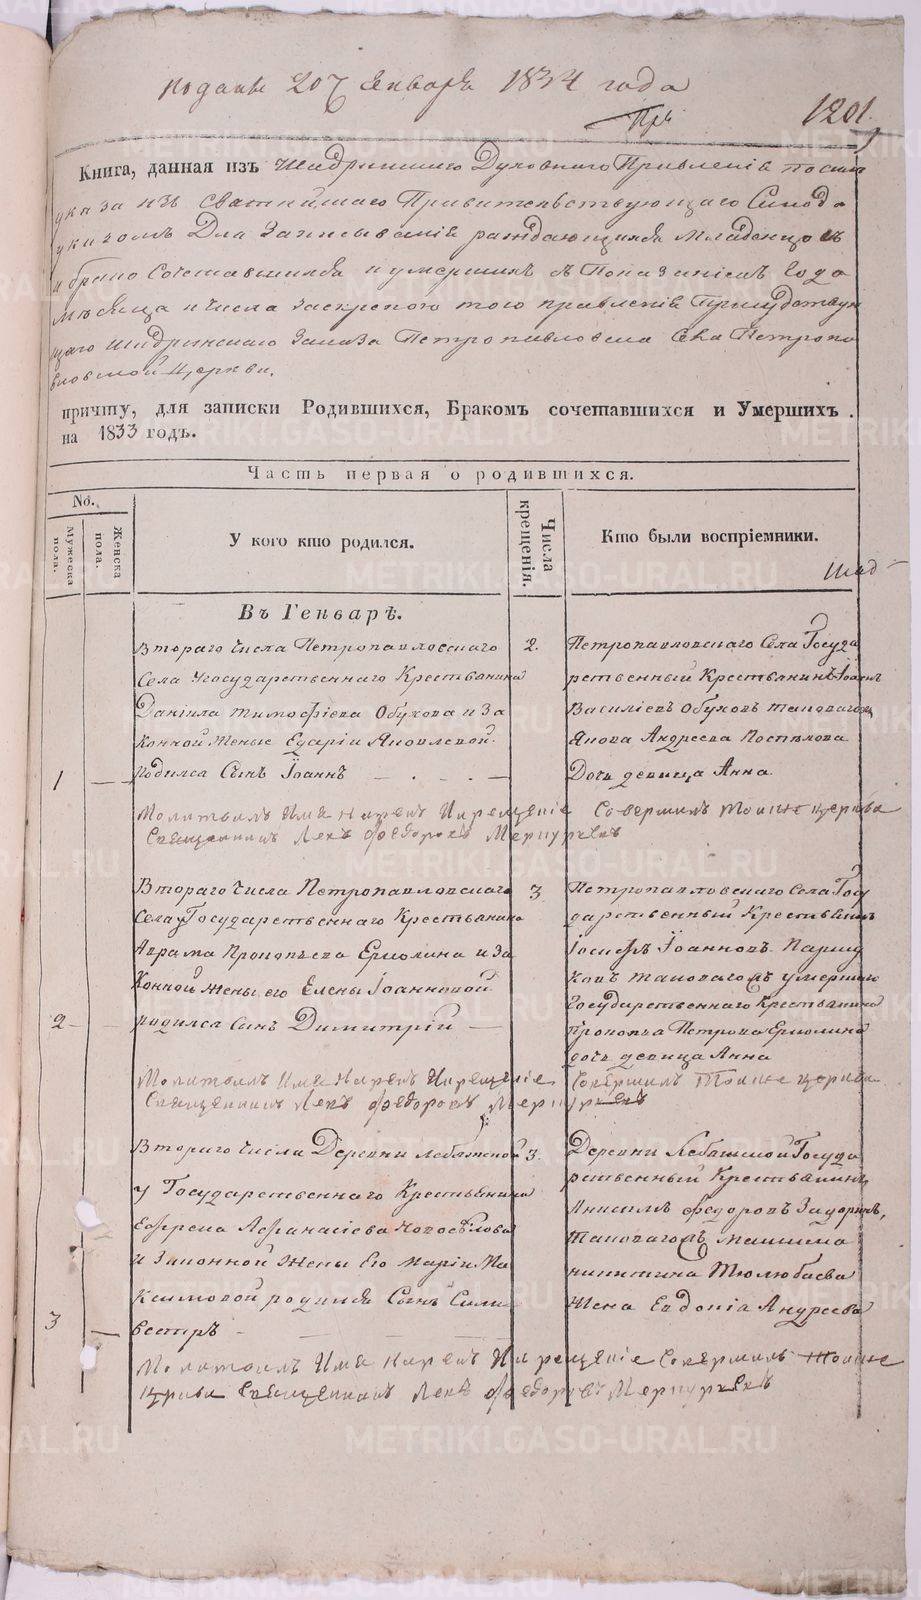 поданъ 20 Января 1834 года
1201.
Книга, данная изъ Шадринскаго Духовнаго Правленія по силѣ
указа изъ Святѣйшаго Правительствующаго Синода
Для Записыванія раждающихся Младенцовъ
и бракосочетавшихся и умершихъ съ Показаніемъ Года
Мѣсяца и Числа Заскрепою того правленія Присудствую
щаго Шадринскаго Заказа Петропавловска Села Петропа
вловской Церкви.
причту, для записки Родившихся, Бракомъ сочетавшихся и Умершихъ
на 1833 годъ.
Часть первая о родившихся.
No.
Мужеска пола.
Женска пола.
У кого кто родился.
Числа крещенія.
Кто были воспріемники.
Шад
Въ Генварѣ.
Втораго Числа Петропавловскаго
Села Угосударственнаго Крестьянина
Даніила Тимофіева Обухова и За
Конной Жены Ѳдаріи Яковлевой
родился Сынъ Іоаннъ
1
2.
Петропавловскаго Села Госуда
рственный Крестьянинъ Іоаннъ
Василіевъ Обуховъ таковагожъ
Якова Андреева Поспѣлова
Дочь девица Анна
Молитвилъ Имя Нарекъ Икрещеніе Совершилъ Тояже церкви
Священникъ Левъ Федоровъ Меркурьевъ
Втораго Числа Петропавловскаго
Села у Государственнаго Крестьянина
Аврама Прокопьева Ермолина и За
Конной Жены его Елены Іоанновой
родился сынъ Димитрій
2
3
Петропавловскаго Села Госу
дарственный Крестьянинъ
Іосифъ Іоанновъ Паршу
ковъ таковагожъ умершаго
Государственнаго Крестьянина
Прокопья Петрова Ермолина
дочь девица Анна
Молитвилъ Имя Нарекъ Икрещеніе Совершилъ Тояже церкви
Священникъ Левъ Федоровъ Меркурьевъ
Втораго Числа Деревни Лебяжской
у Государственнаго Крестьянина
Ефрема Афанасіева Новосѣлова
и Законной Жены Его Маріи Ма
ксимовой родился Сынъ Сили
вестръ
3
3.
Деревни Лебяжской Госуда
рственный Крестьянинъ
Анисимъ Федоровъ Задоринъ,
таковагожъ Максима
никитина Тюлюбаева
Жена Евдокіа Андреева
Молитвилъ Имя Нарекъ Икрещеніе Совершилъ Тояже
Церкви Священникъ Левъ Федоровъ Меркурьевъ